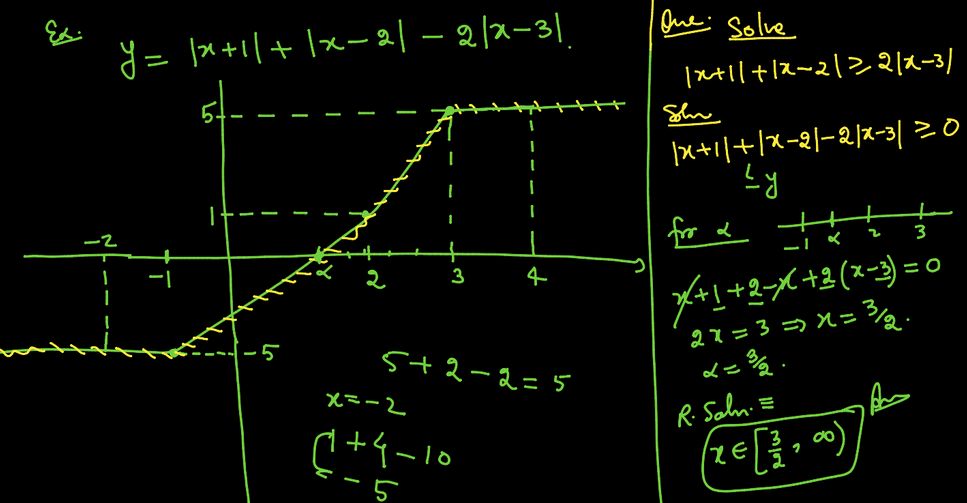 Ex.
y = |x+1| + |x-2| - 2|x-3|.
5
1
-2
-1
α
2
3
4
-5
5 + 2 - 2 = 5
x = -2
1 + 4 - 10
- 5
Que: Solve
|x+1| + |x-2| ≥ 2|x-3|
Soln
|x+1| + |x-2| - 2|x-3| ≥ 0
y
for α
-1 α 2 3
x + 1 + 2 - x + 2(x-3) = 0
2x = 3 ⇒ x = 3/2.
α = 3/2.
R. Soln. ≡
Ans
x ∈ [3/2, ∞)